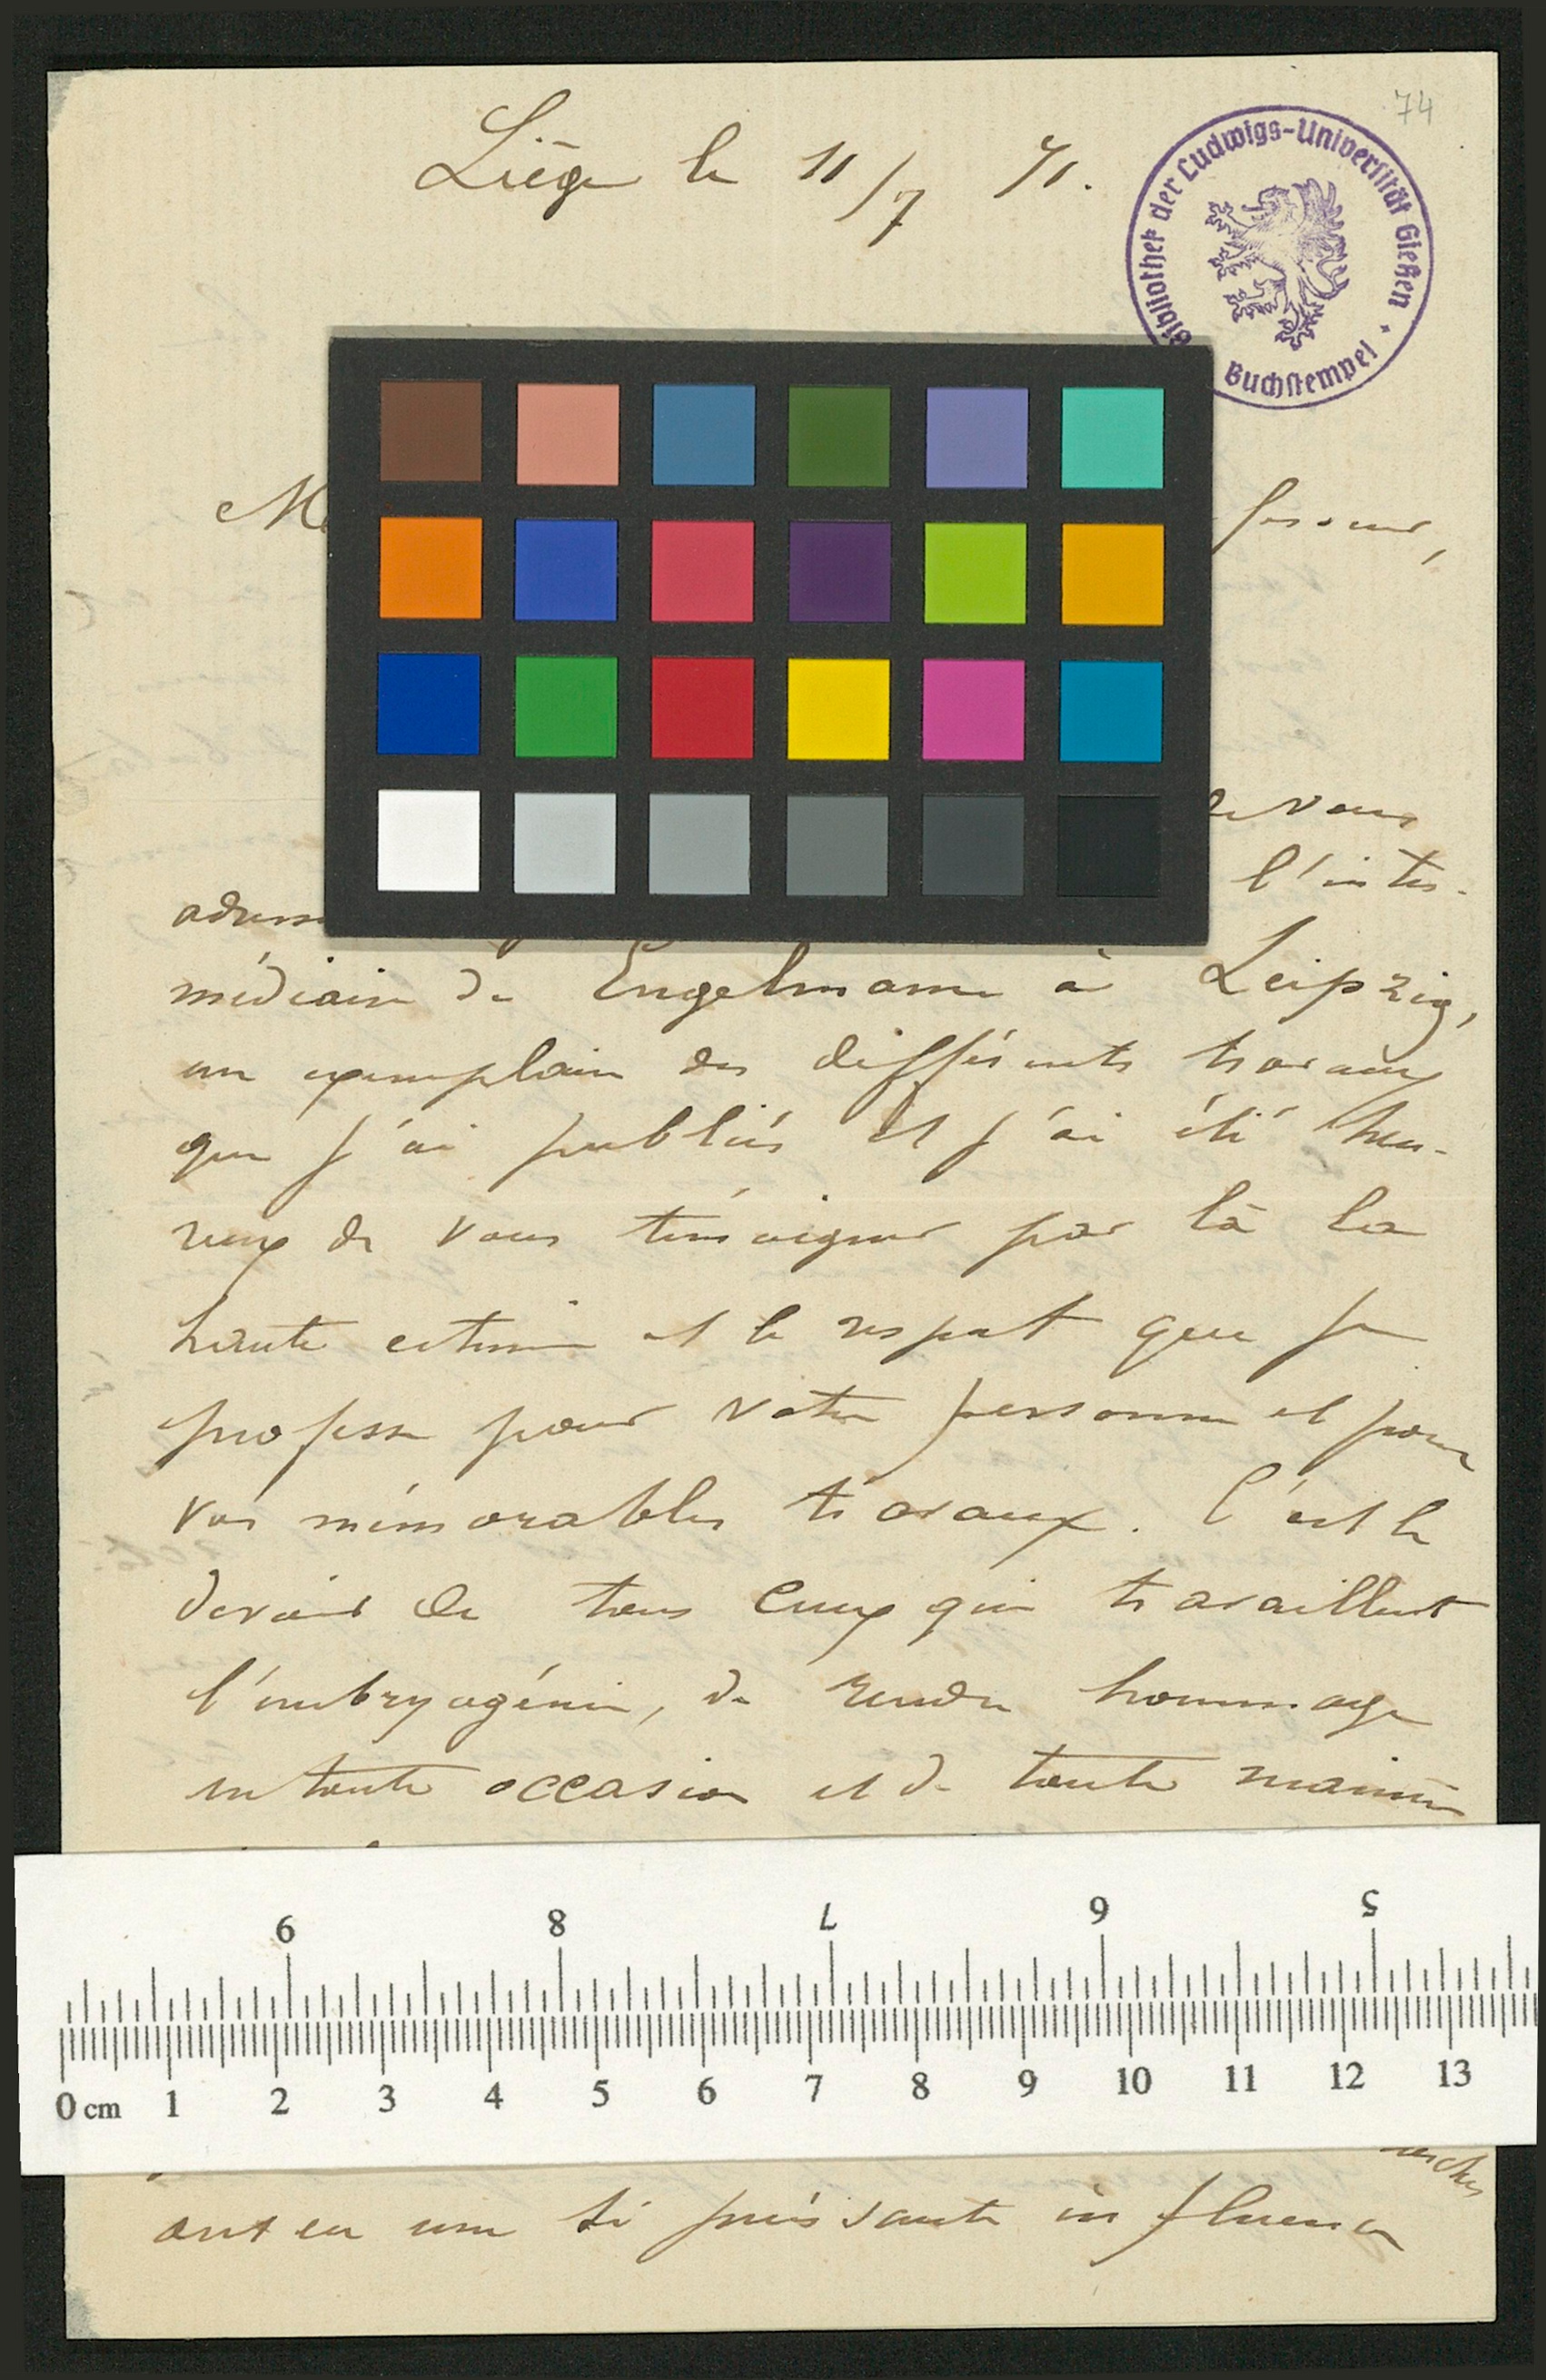 74
Liège le 11/7 71.
Bibliothek der Ludwigs-Universität Gießen
Buchstempel
fesseur,
de vous
l'inter-
médiaire de Engelmann à Leipzig,
un exemplaire des différents travaux
que j'ai publiés et j'ai été heu-
reux de vous témoigner par là la
haute estime et le respect que je
professe pour votre personne et pour
vos mémorables travaux. C'est le
devoir de tous ceux qui travaillent
l'embryogénie, de rendre hommage
en toute occasion et de toute manière
9 8 7 6 5
0 cm 1 2 3 4 5 6 7 8 9 10 11 12 13
ont eu une si puissante influence